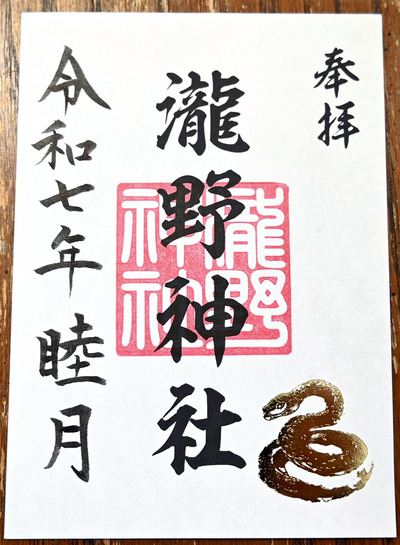 奉拝
瀧野神社
瀧野
神社
令和七年 睦月